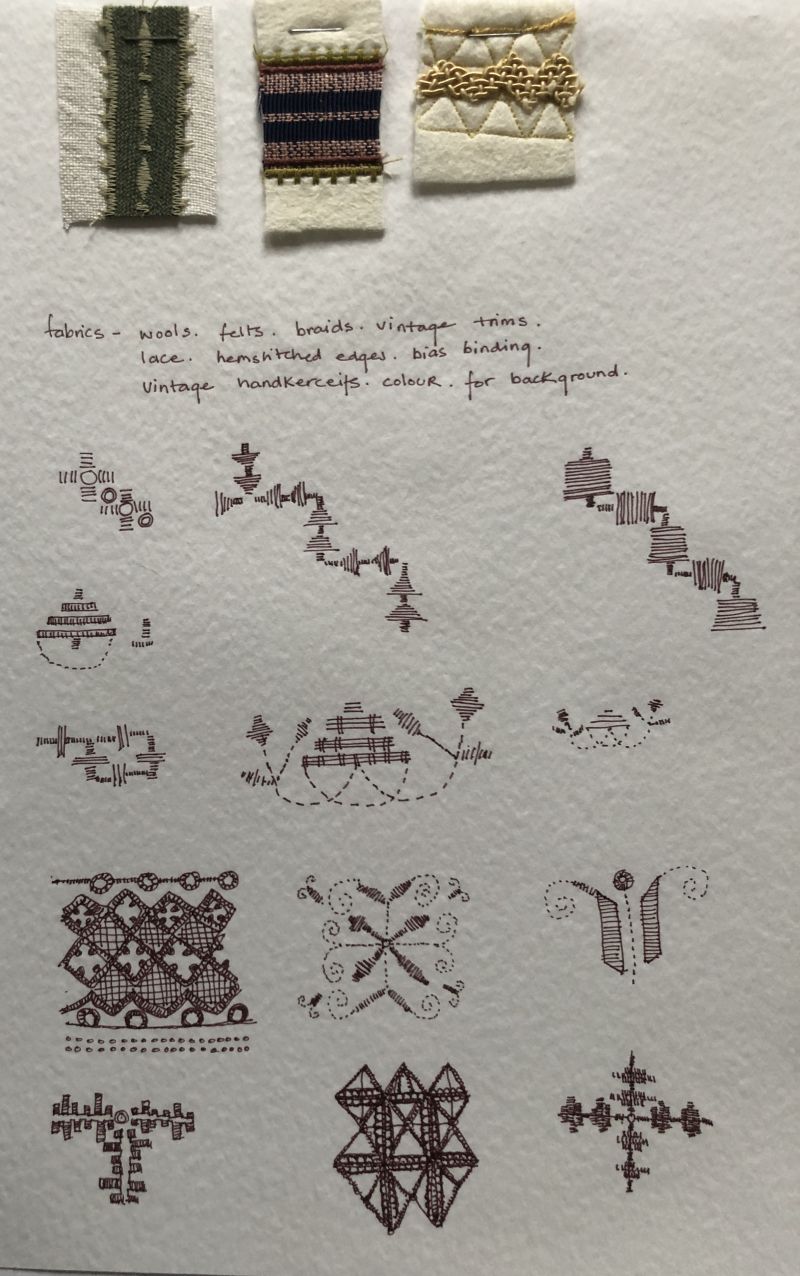 fabrics - wools. felts. braids. vintage trims.
lace. hemstitched edges. bias binding.
vintage handkerceifs. colour. for background.